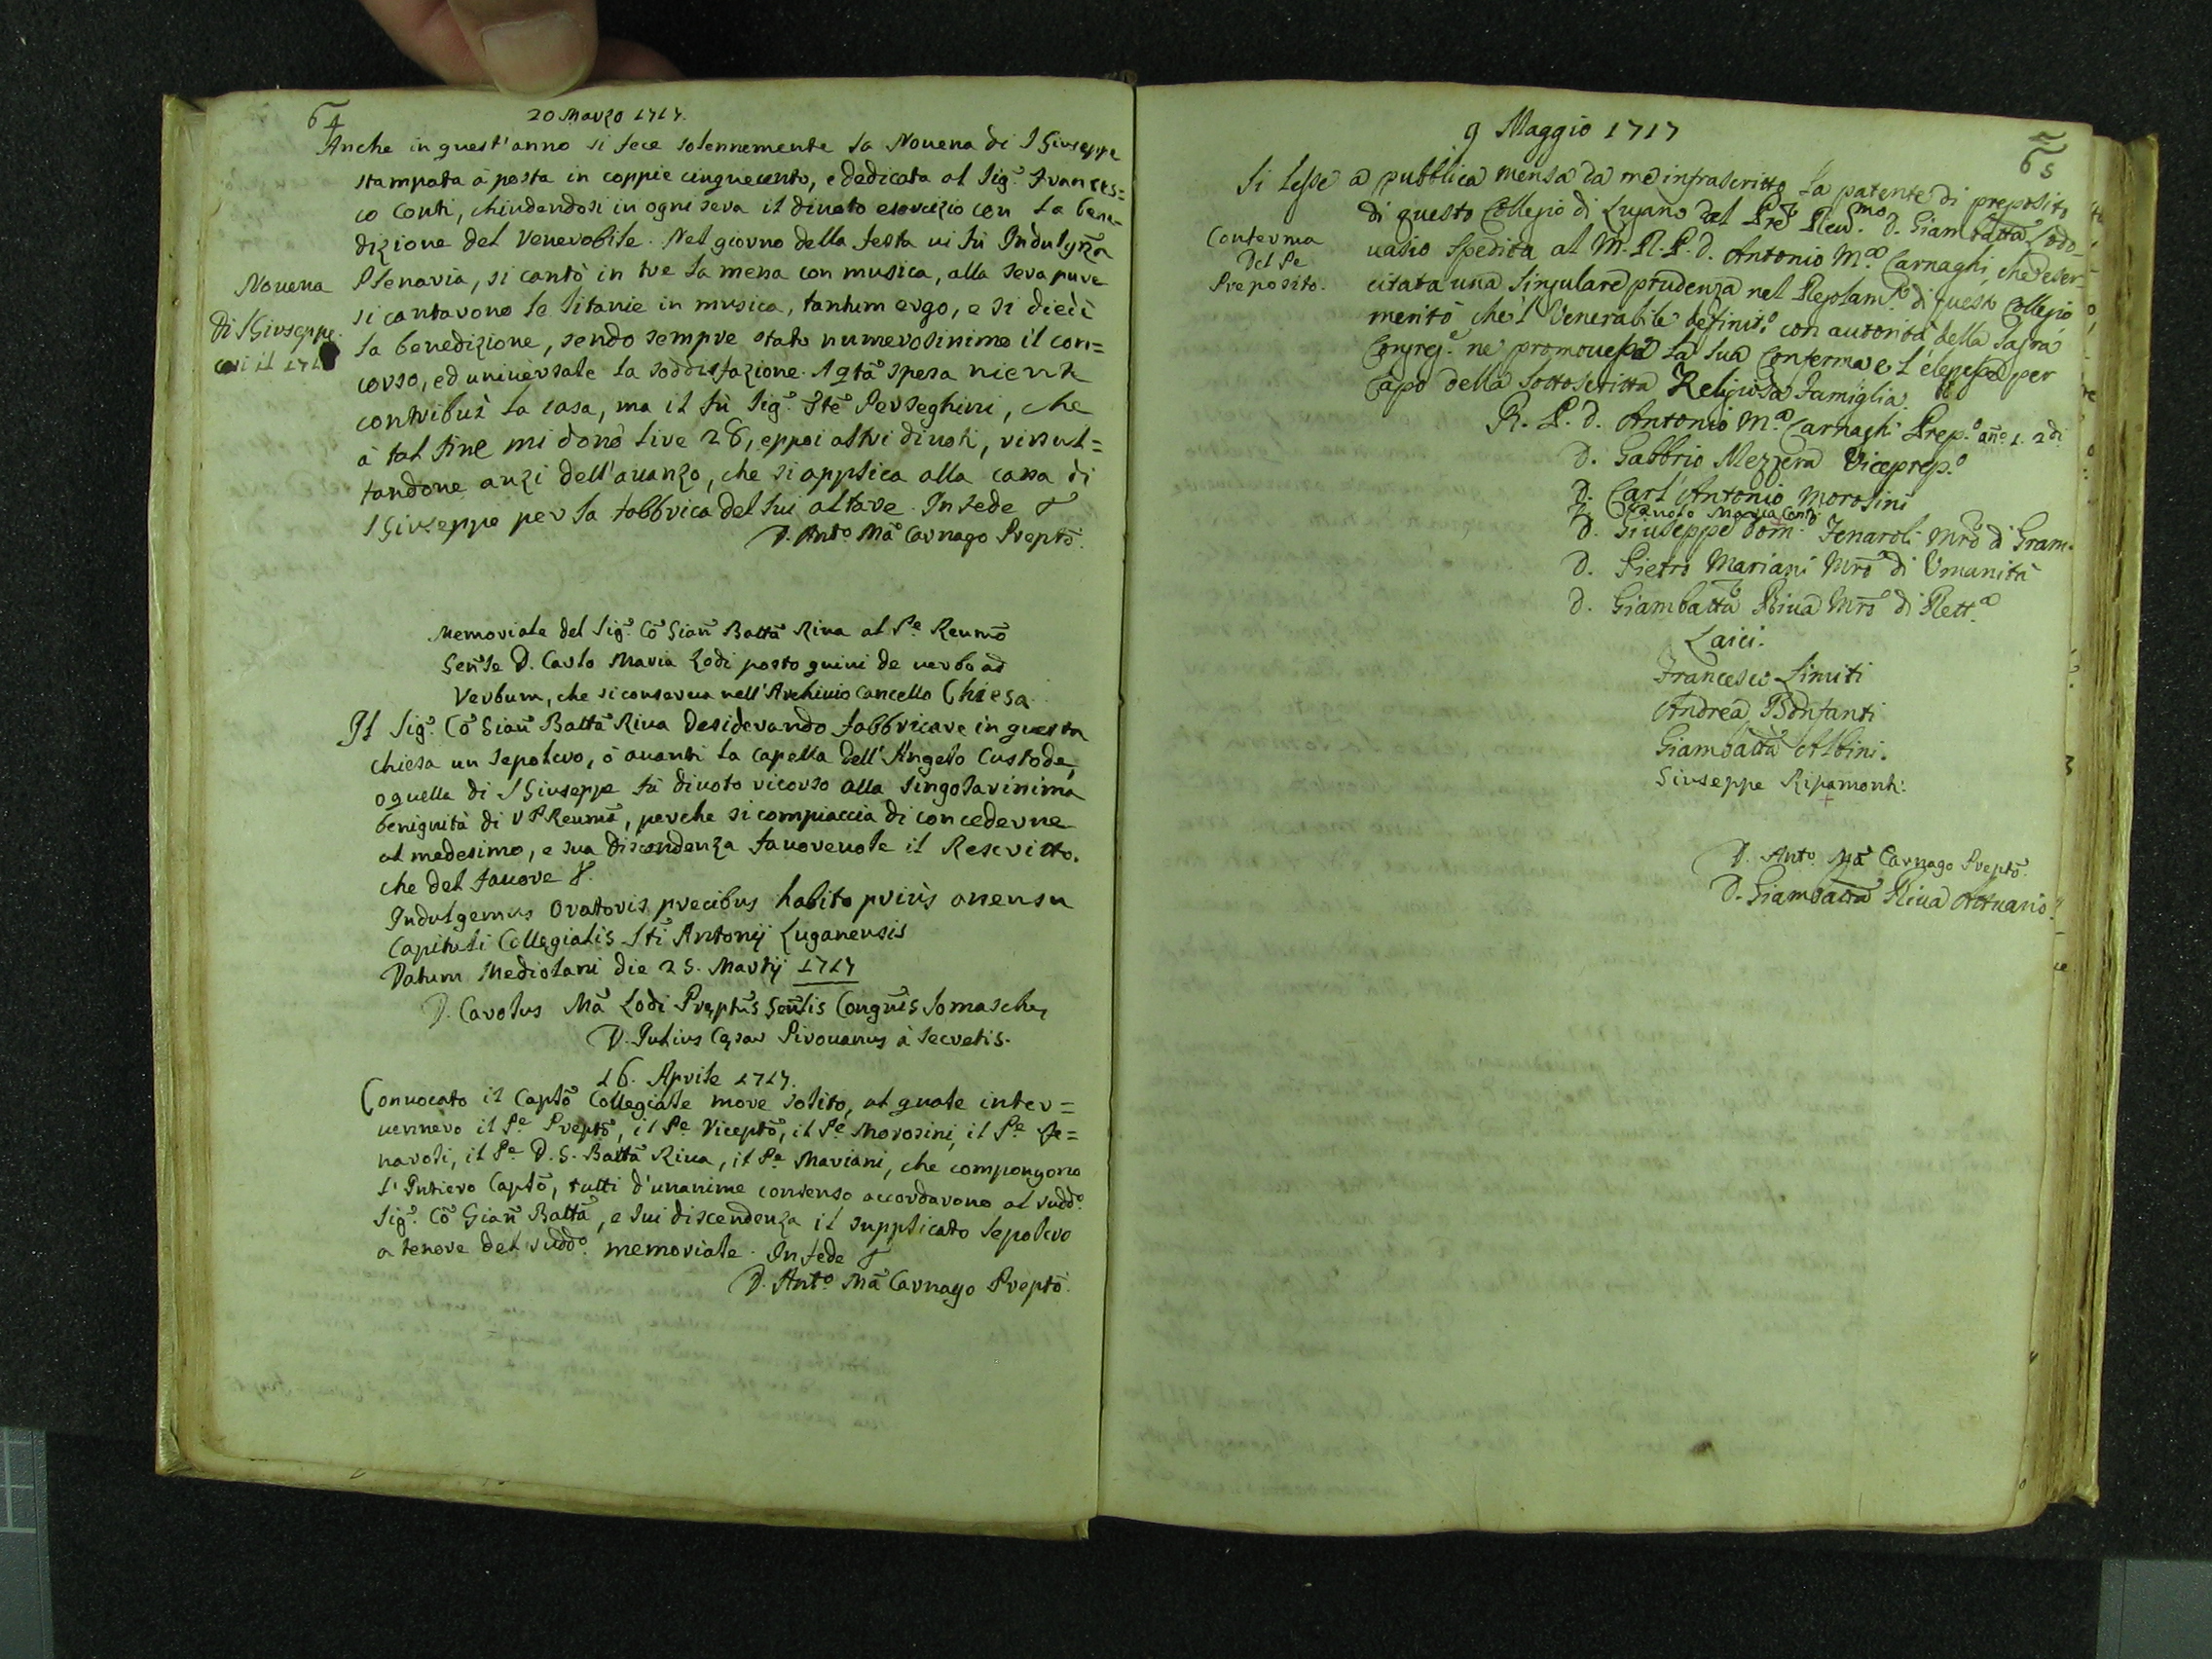 64
20 Marzo 1717.
Anche in quest'anno si fece solennemente la Novena di S Giuseppe
stampata à posta in coppie cinquecento, e dedicata al Sig.r Frances=
co Conti, chiudendosi in ogni sera il divoto esercizio con la bene=
dizione del Venerabile. Nel giorno della festa vi fù Indulgza
Plenaria, si cantò in tre la messa con musica, alla sera pure
si cantarono le litanie in musica, tantum ergo, e si diedi
la benedizione, sendo sempre stato numerosissimo il con=
corso, ed universale la soddisfazione. A qta spesa niente
contribuì la casa, ma il fù Sig.r Perseghini, che
à tal fine mi donò lire 28, eppoi altri divoti, risul=
tandone anzi dell'avanzo, che si applica alla cassa di
S Giuseppe per la fabbrica del sui altare. In fede &
D. Anto. Ma Carnago Prepto.
Novena
di S Giuseppe.
Memoriale del Sig.r Co Gian Batta Riva al Pe Reumo
Genle D. Carlo Maria Lodi posto quivi de verbo ad
Verbum, che si conserva nell'Archivio Cancello Chiesa.
Il Sig.r Co Gian Batta Riva desiderando fabbricare in questa
chiesa un sepolcro, ò avanti la capella dell'Angelo Custode,
o quella di S Giuseppe fà divoto ricorso alla singolarissima
benignità di V P Reuma, perche si compiaccia di concederne
al medesimo, e sua discendenza favorevole il Rescritto.
che del favore &.
Indulgemus Oratoris precibus habito priùs assensu
Capituli Collegialis Sti Antonij Luganensis
Datum Mediolani die 25. Martij 1717
D. Carolus Ma Lodi Preptus Genlis Congnis Somasche
D. Julius Cesar Pirovanus à secretis.
16. Aprile 1717.
Convocato il Capto Collegiale more solito, al quale inter=
vennero il Pe Prepto, il Pe Vicepto, il Pe Morosini, il Pe Fe=
naroli, il Pe D. G. Batta Riva, il Pe Mariani, che compongono
l'Intiero Capto, tutti d'unanime consenso accordarono al sudd.o
Sig.r Co Gian Batta, e sui discendenza il supplicato sepolcro
a tenore del sudd.o memoriale. In fede &
D. Anto. Ma Carnago Prepto.
65
9 Maggio 1717
Si lesse a pubblica mensa da me infrascritto la patente di preposito
di questo Collegio di Lugano dal Pre Reu.mo D. Giambatta Lodo-
vasio spedita al M. R. P. D. Antonio M.a Carnaghi, che eser-
citata una singulare prudenza nel Reglam.to di questo Collegio
meritò che 'l Venerabile definit.o con autorità della Sagra
Congreg.e ne promovesse la sua Conferma e l'elegesse per
Capo della sottoscritta Religiosa Famiglia.
Conferma
Del Pe
Preposito.
R. P. D. Antonio M.a Carnaghi Prep.o anno 1. 2di
D. Gabbrio Mezzera Viceprep.o
D. Carl'Antonio Morosini
D. Maria Conti
D. Giuseppe Dom. Fenaroli Mro di Gram.
D. Pietro Mariani Mro di Umanità
D. Giambatta Riva Mro di Rett.a
Laici.
Francesco Limiti
Andrea Bonfanti
Giambatta Albini.
Giuseppe Ripamonti.
D. Anto. Ma Carnago Prepto.
D. Giambatta Riva Attuario.